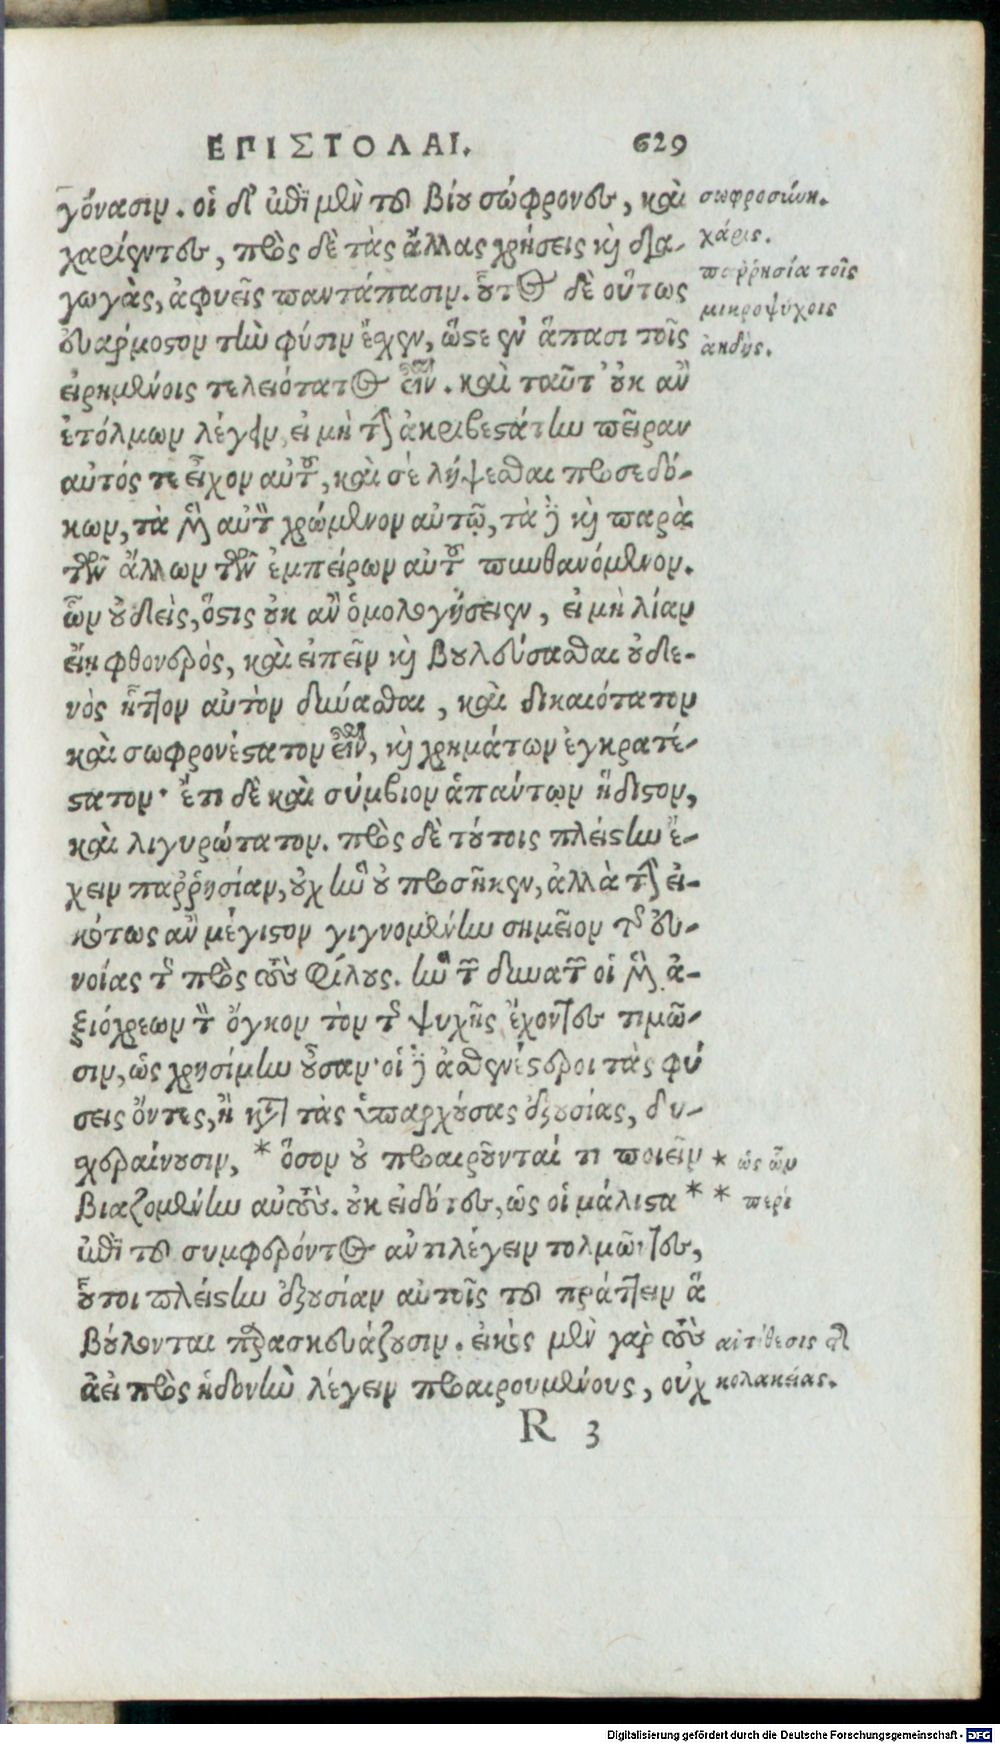 ΕΠΙΣΤΟΛΑΙ. 629
γόνασιν. οἱ δ' ἐπὶ μὲν τοῦ βίου σώφρονες, καὶ
χαρίεντες, πρὸς δὲ τὰς ἄλλας χρήσεις καὶ δια-
γωγὰς, ἀφυεῖς παντάπασιν. οὗτος δὲ οὕτως
εὐάρμοστον τὴν φύσιν ἔχεν, ὥστε ἐν ἅπασι τοῖς
εἰρημένοις τελειότατος εἶναι. καὶ ταῦτ' οὐκ ἂν
ἐτόλμων λέγειν, εἰ μὴ τὴν ἀκριβεστάτην πεῖραν
αὐτός τε εἶχον αὐτοῦ, καὶ σὲ λήψεσθαι προσεδό-
κων, τὰ μὲν αὐτὸν χρώμενον αὐτῷ, τὰ δὲ καὶ παρὰ
τῶν ἄλλων τῶν ἐμπείρων αὐτοῦ πυνθανόμενον.
ὧν οὐδεὶς, ὅστις οὐκ ἂν ὁμολογήσειεν, εἰ μὴ λίαν
εἴη φθονερὸς, καὶ εἰπεῖν καὶ βουλεύσασθαι οὐδε-
νὸς ἧττον αὐτὸν δύνασθαι, καὶ δικαιότατον
καὶ σωφρονέστατον εἶναι, καὶ χρημάτων ἐγκρατέ-
στατον· ἔτι δὲ καὶ σύμβιον ἁπάντων ἥδιστον,
καὶ λιγυρώτατον. πρὸς δὲ τούτοις πλείστην ἔ-
χειν παῤῥησίαν, οὐχ ἣν οὐ προσῆκεν, ἀλλὰ τὴν εἰ-
κότως ἂν μέγιστον γιγνομένην σημεῖον τῆς εὐ-
νοίας τῆς πρὸς τοὺς φίλους. ἣν τῶν δυνατῶν οἱ μὲν ἀ-
ξιόχρεων τὸν ὄγκον τὸν τῆς ψυχῆς ἔχοντες τιμῶ-
σιν, ὡς χρησίμην οὖσαν· οἱ δὲ ἀσθενέστεροι τὰς φύ
σεις ὄντες, ἢ κατὰ τὰς ὑπαρχούσας ἐξουσίας, δυ-
χεραίνουσιν, * ὅσον οὐ προαιροῦνταί τι ποιεῖν
βιαζομένην αὐτούς. οὐκ εἰδότες, ὡς οἱ μάλιστα **
ἐπὶ τοῦ συμφέροντος ἀντιλέγειν τολμῶντες,
οὗτοι πλείστην ἐξουσίαν αὐτοῖς τοῦ πράττειν ἃ
βούλονται παρασκευάζουσιν. εἰκὸς μὲν γὰρ τοὺς
ἀεὶ πρὸς ἡδονὴν λέγειν προαιρουμένους, οὐχ
R 3
σωφροσύνη.
χάρις.
παῤῥησία τοῖς
μικροψύχοις
ἀηδής.
* ὡς ὧν
* περὶ
ἀντίθεσις
κολακείας.
Digitalisierung gefördert durch die Deutsche Forschungsgemeinschaft - DFG